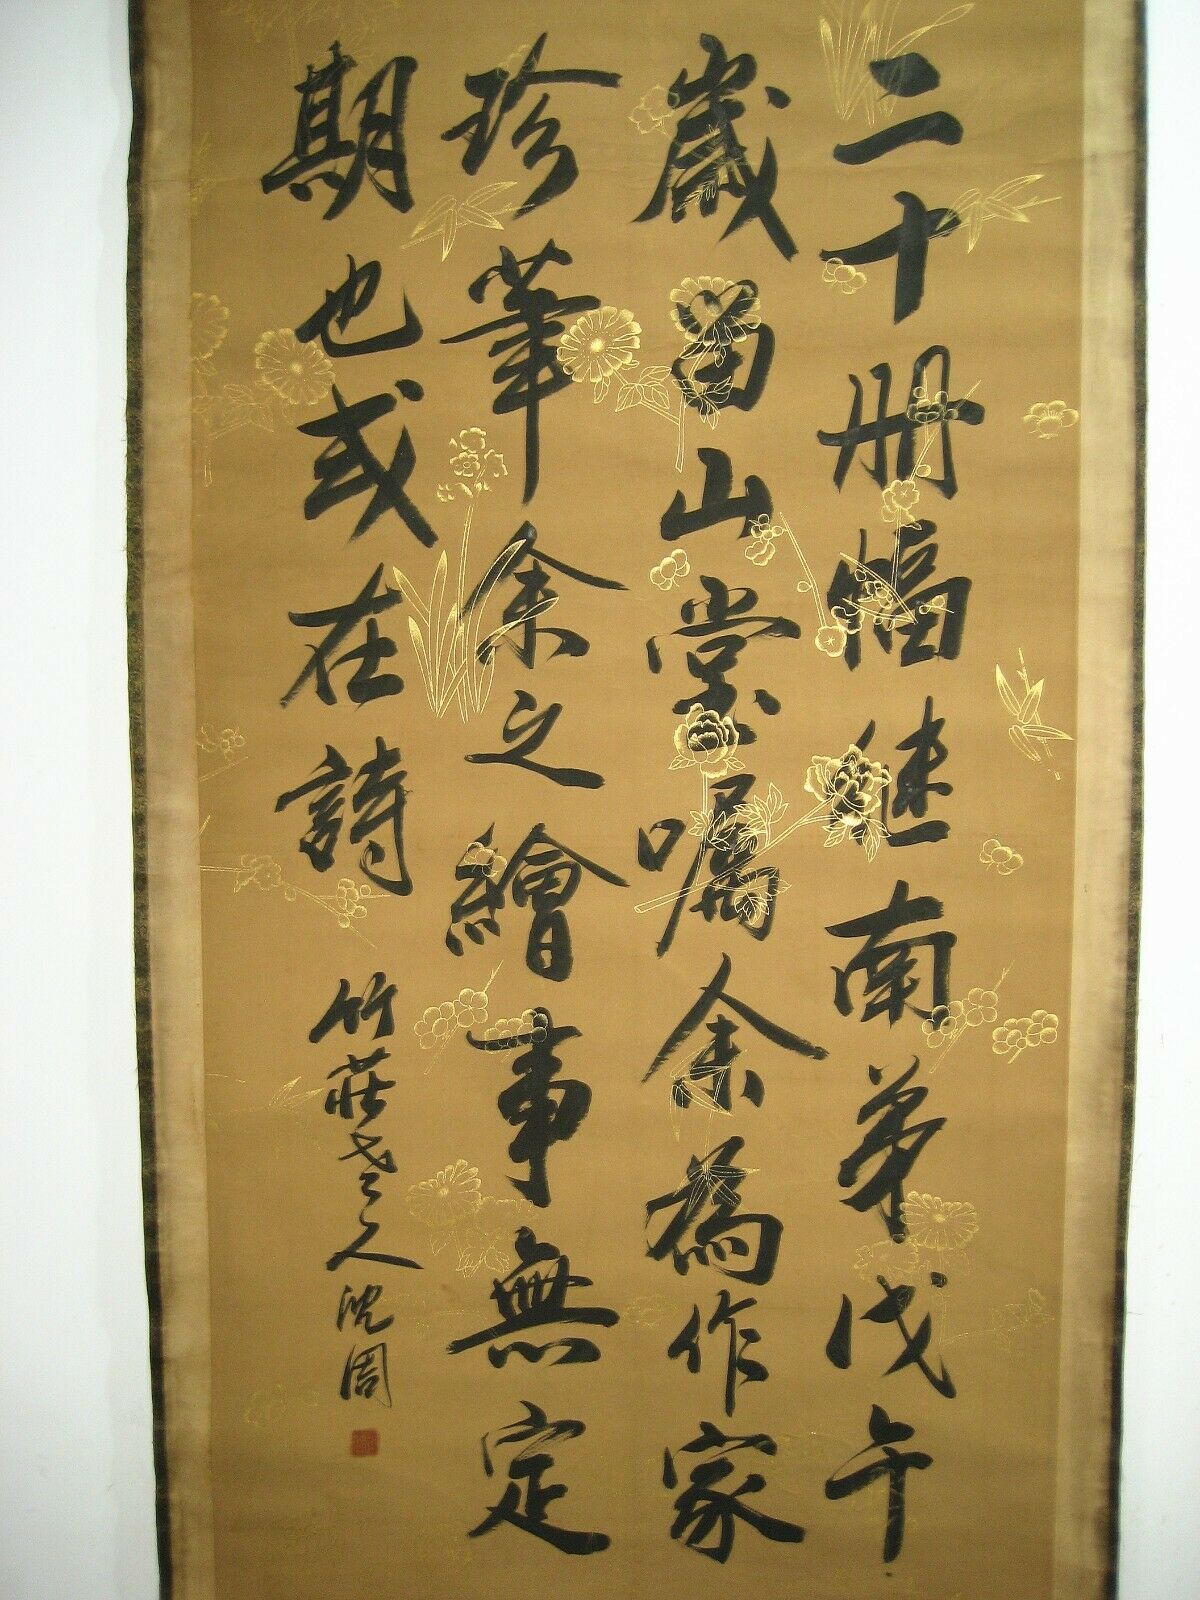 二十册幅継南弟戊午
歲留山堂囑余為作家
珍筆余之繪事無定
期也或在詩
竹莊老人沈周